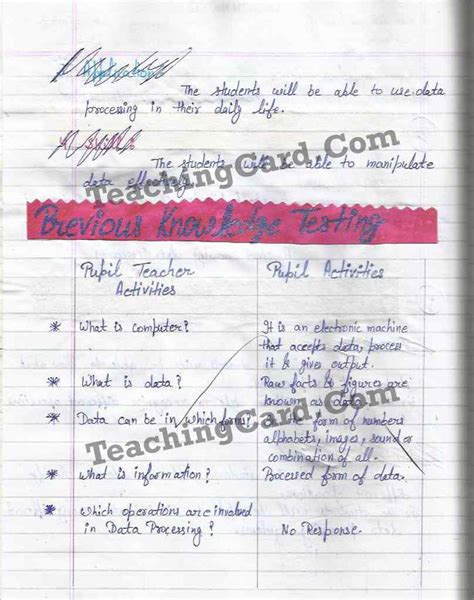 Application
The students will be able to use data
processing in their daily life.
The students will be able to manipulate
data effectively.
TeachingCard.Com
Previous Knowledge Testing
Pupil Teacher Activities
Pupil Activities
* What is computer?
It is an electronic machine
that accepts data, process
it & gives output.
* What is data?
Raw facts & figures are
known as data.
* Data can be in which forms?
In the form of numbers
alphabets, images, sound or
combination of all.
TeachingCard.Com
* What is information?
Processed form of data.
* Which operations are involved
in Data Processing?
No Response.